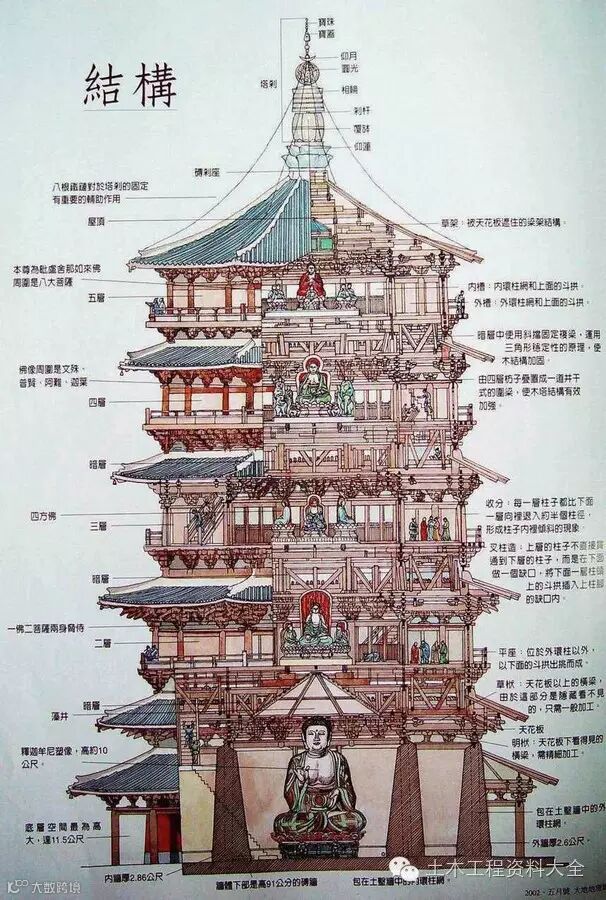 結構
寶珠
寶蓋
仰月
圓光
塔刹
相輪
刹杆
覆鉢
仰蓮
磚刹座
八根鐵鏈對於塔刹的固定
有重要的輔助作用
屋頂
草架：被天花板遮住的梁架結構。
本尊為毗盧舍那如來佛
周圍是八大菩薩
五層
內槽：內環柱網和上面的斗拱。
外槽：外環柱網和上面的斗拱。
暗層中使用斜撐固定複梁，運用
三角形穩定性的原理，使
木結構加固。
佛像周圍是文殊、
普賢、阿難、迦葉
四層
由四層枋子疊置成一道井干
式的圍梁，使木塔結構有效
加強。
暗層
四方佛
三層
收分：每一層柱子都比下面
一層向裡退入約半個柱徑，
形成柱子內裡傾斜的現象。
叉柱造：上層的柱子不直接貫
通到下層的柱子，而是在下面
做一個缺口，將下面一層柱頭
上的斗拱插入上柱腳
的缺口內。
暗層
一佛二菩薩兩身脅侍
二層
平座：位於外環柱以外，
以下面的斗拱出挑而成。
草栿：天花板以上的橫梁，
由於這部分是隱藏看不見
的，只需一般加工。
暗層
藻井
天花板
明栿：天花板下看得見的
橫梁，需精細加工。
釋迦牟尼塑像，高約10
公尺。
底層空間最為高
大，達11.5公尺。
包在土墼牆中的外
環柱網。
外牆厚2.6公尺。
內牆厚2.86公尺
牆體下部是高91公分的磚牆
包在土墼牆中的內環柱網。
土木工程资料大全
大数跨境
2002．五月號 大地地理雜